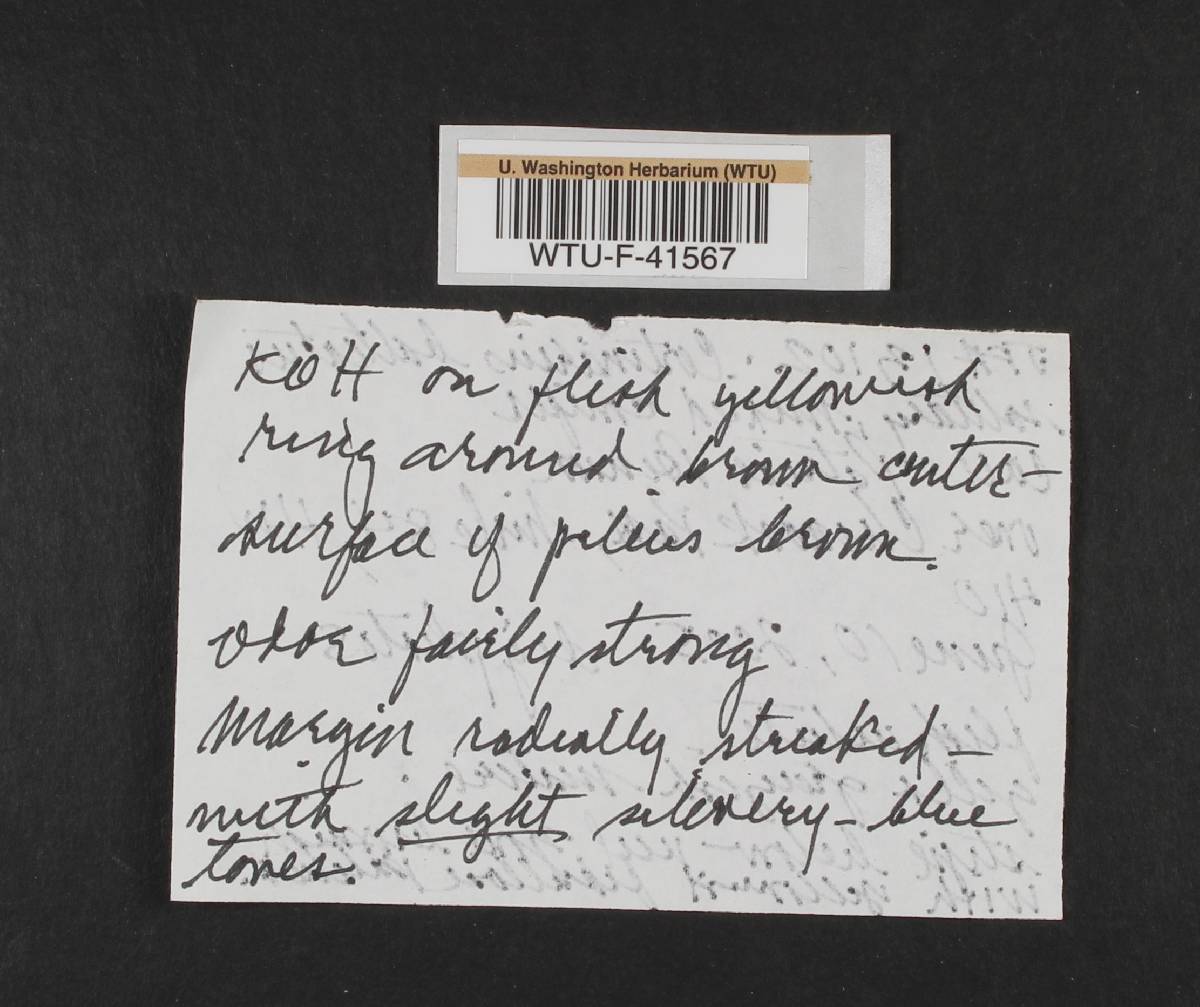 U. Washington Herbarium (WTU)
WTU-F-41567
KOH on flesh yellowish
ring around brown center -
surface of pileus brown.
Odor fairly strong
Margin radially streaked -
with slight silvery - blue
tones.